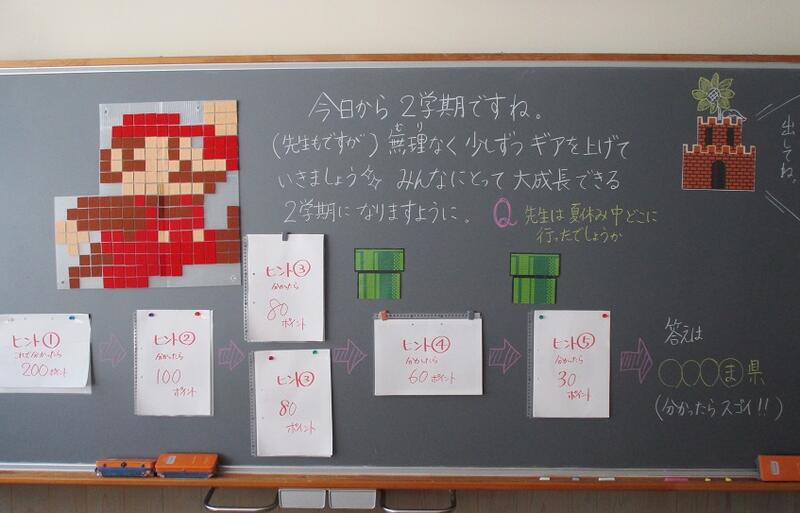 今日から2学期ですね。
(先生もですが)無理なく少しずつギアを上げて
いきましょう みんなにとって大成長できる
2学期になりますように。
Q 先生は夏休み中どこに
行ったでしょうか
出してね。
ヒント①
これで分かったら
200ポイント
ヒント②
分かったら
100
ポイント
ヒント③
分かったら
80
ポイント
ヒント③
80
ポイント
ヒント④
分かったら
60ポイント
ヒント⑤
分かったら
30
ポイント
答えは
○○○ま県
(分かったらスゴイ!!)